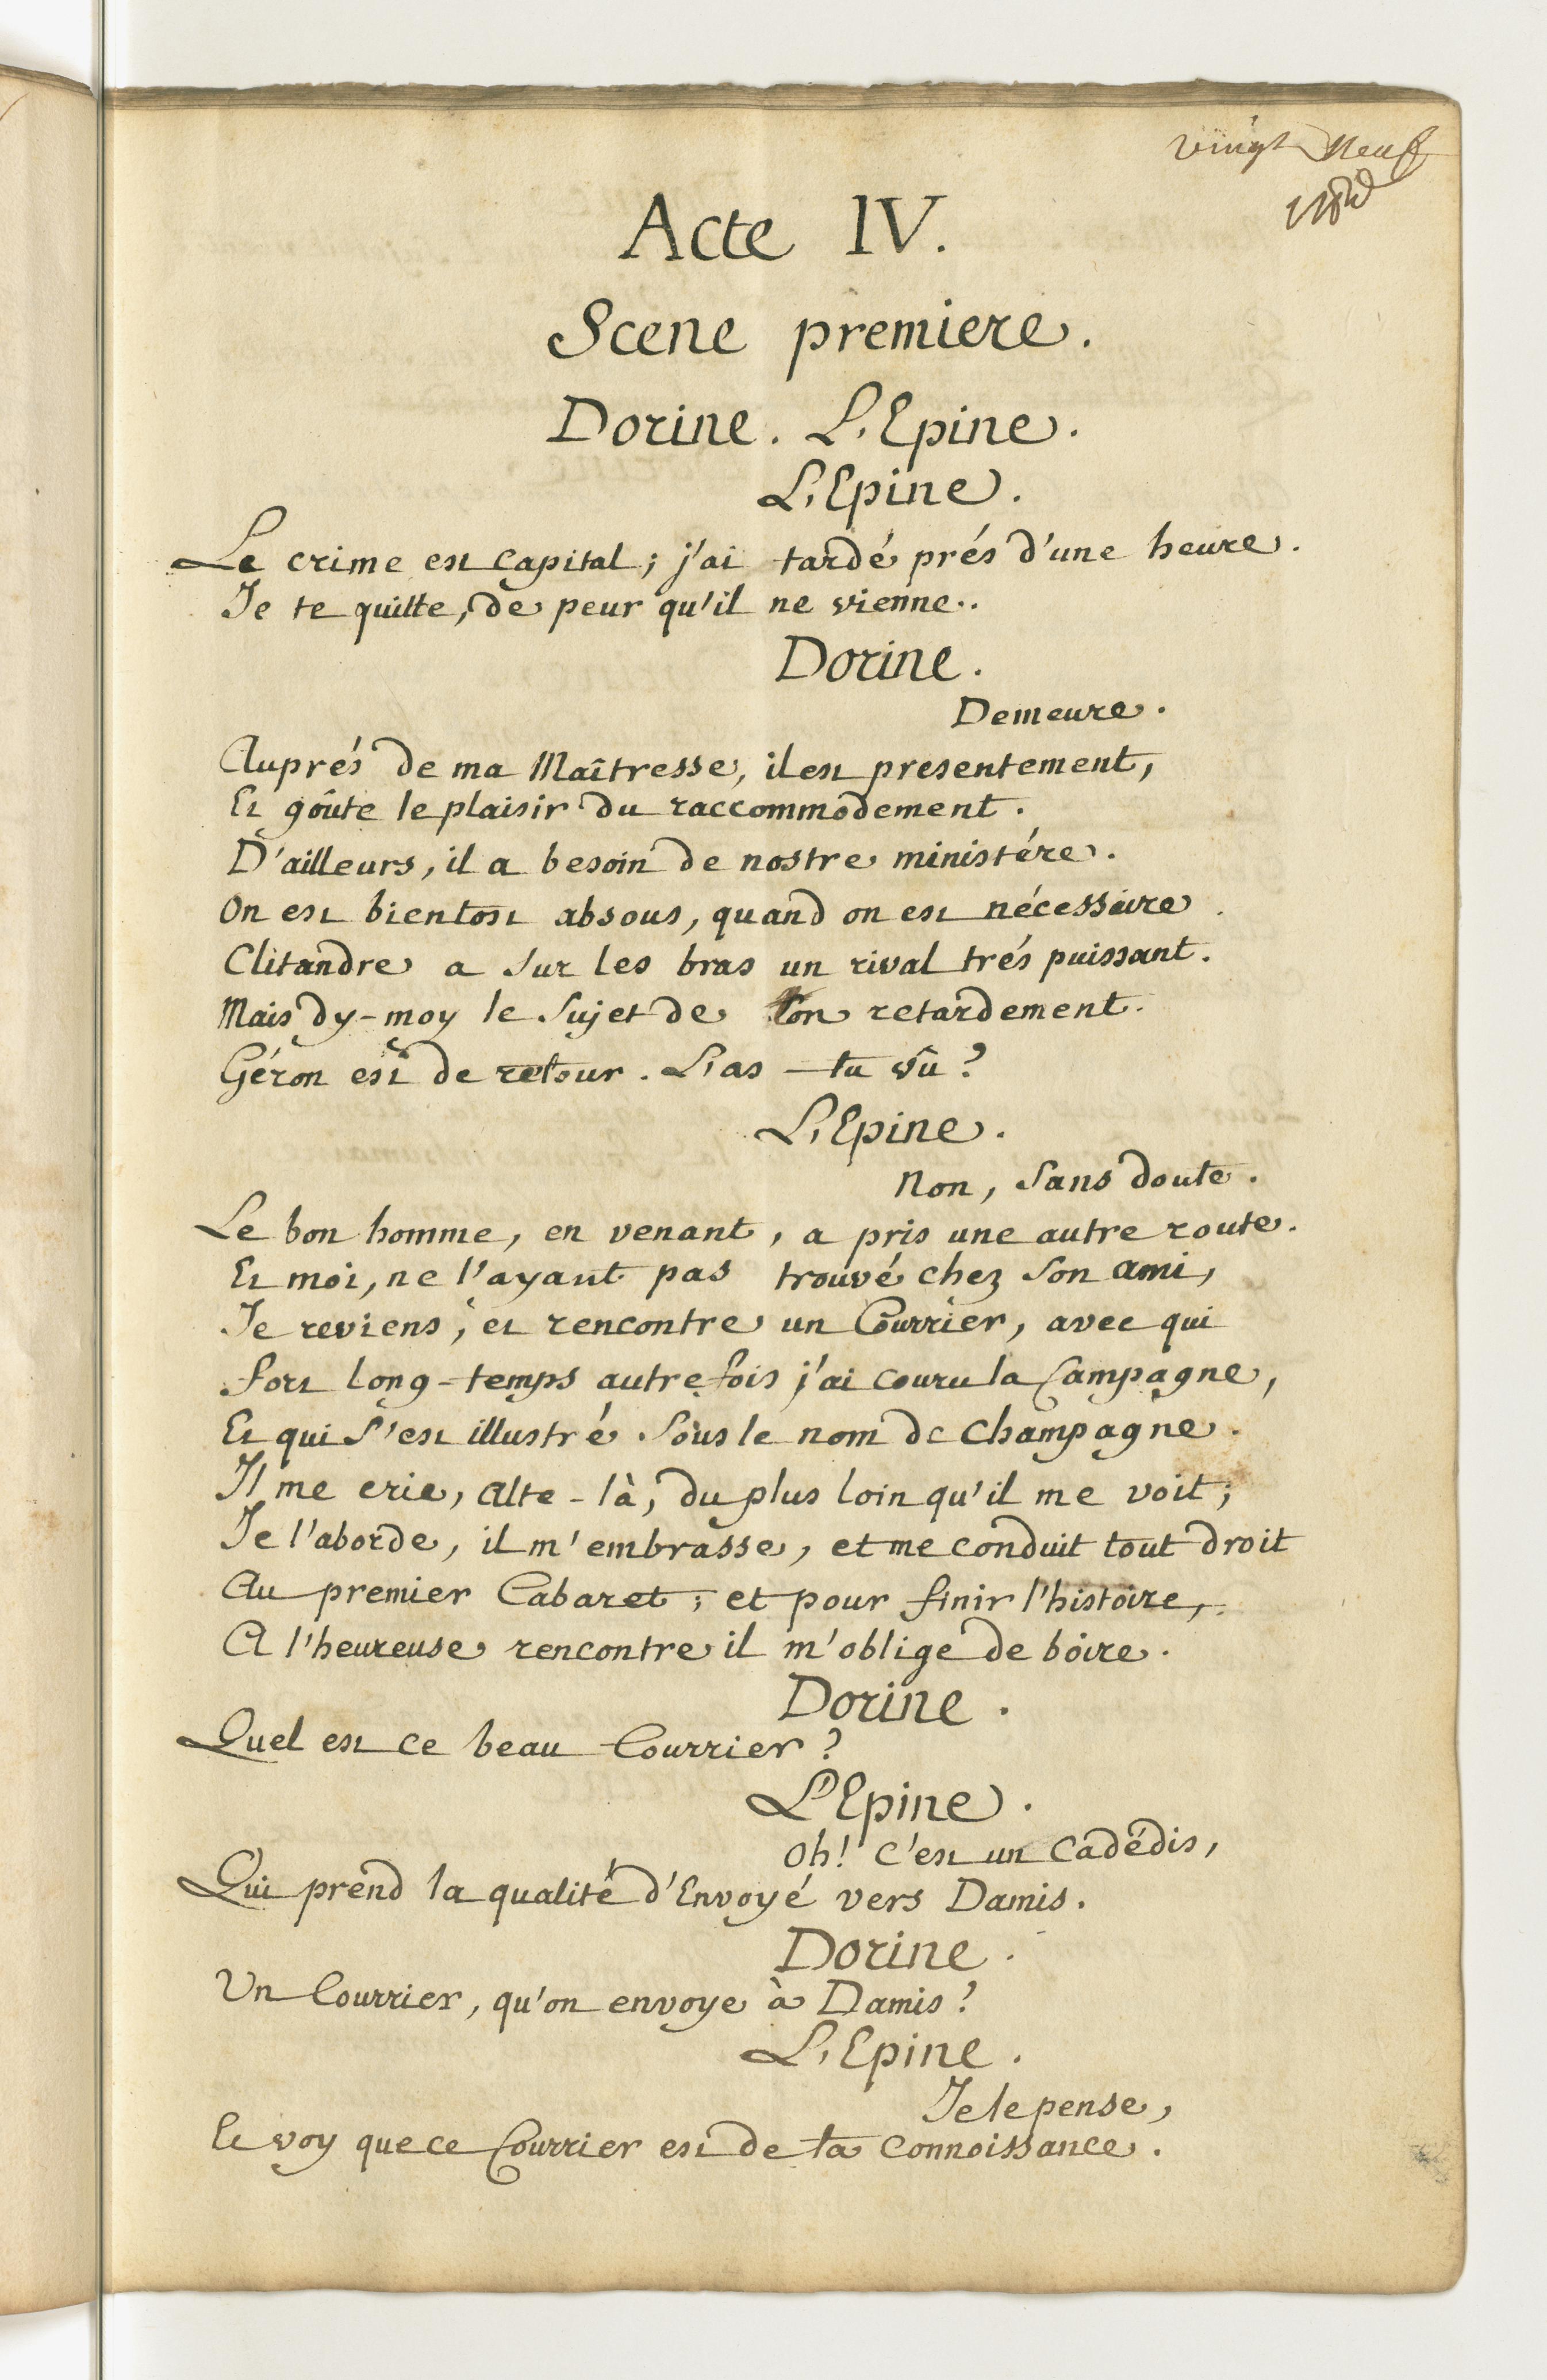 vingt Neuf
Acte IV.
Scene premiere.
Dorine. L'Epine.
L'Epine.
Le crime est capital; j'ai tardé prés d'une heure.
Je te quitte, de peur qu'il ne vienne..
Dorine.
Demeure.
Auprés de ma Maîtresse, il est presentement,
Et goûte le plaisir du raccommodement.
D'ailleurs, il a besoin de nostre ministére.
On est bientost absous, quand on est nécessaire.
Clitandre a sur les bras un rival trés puissant.
Mais dy-moy le sujet de ton retardement.
Géron est de retour. L'as-tu vû?
L'Epine.
Non, sans doute.
Le bon homme, en venant, a pris une autre route.
Et moi, ne l'ayant pas trouvé chez son ami,
Je reviens, et rencontre un Courrier, avec qui
Fort long-temps autrefois j'ai couru la Campagne,
Et qui s'est illustré sous le nom de Champagne.
Il me crie, Alte-là, du plus loin qu'il me voit;
Je l'aborde, il m'embrasse, et me conduit tout droit
Au premier Cabaret; et pour finir l'histoire,
A l'heureuse rencontre il m'oblige de boire.
Dorine.
Quel est ce beau Courrier?
L'Epine.
Oh! c'est un Cadédis,
Qui prend la qualité d'Envoyé vers Damis.
Dorine.
Un Courrier, qu'on envoye à Damis?
L'Epine.
Je le pense,
Et voy que ce Courrier est de ta connoissance.